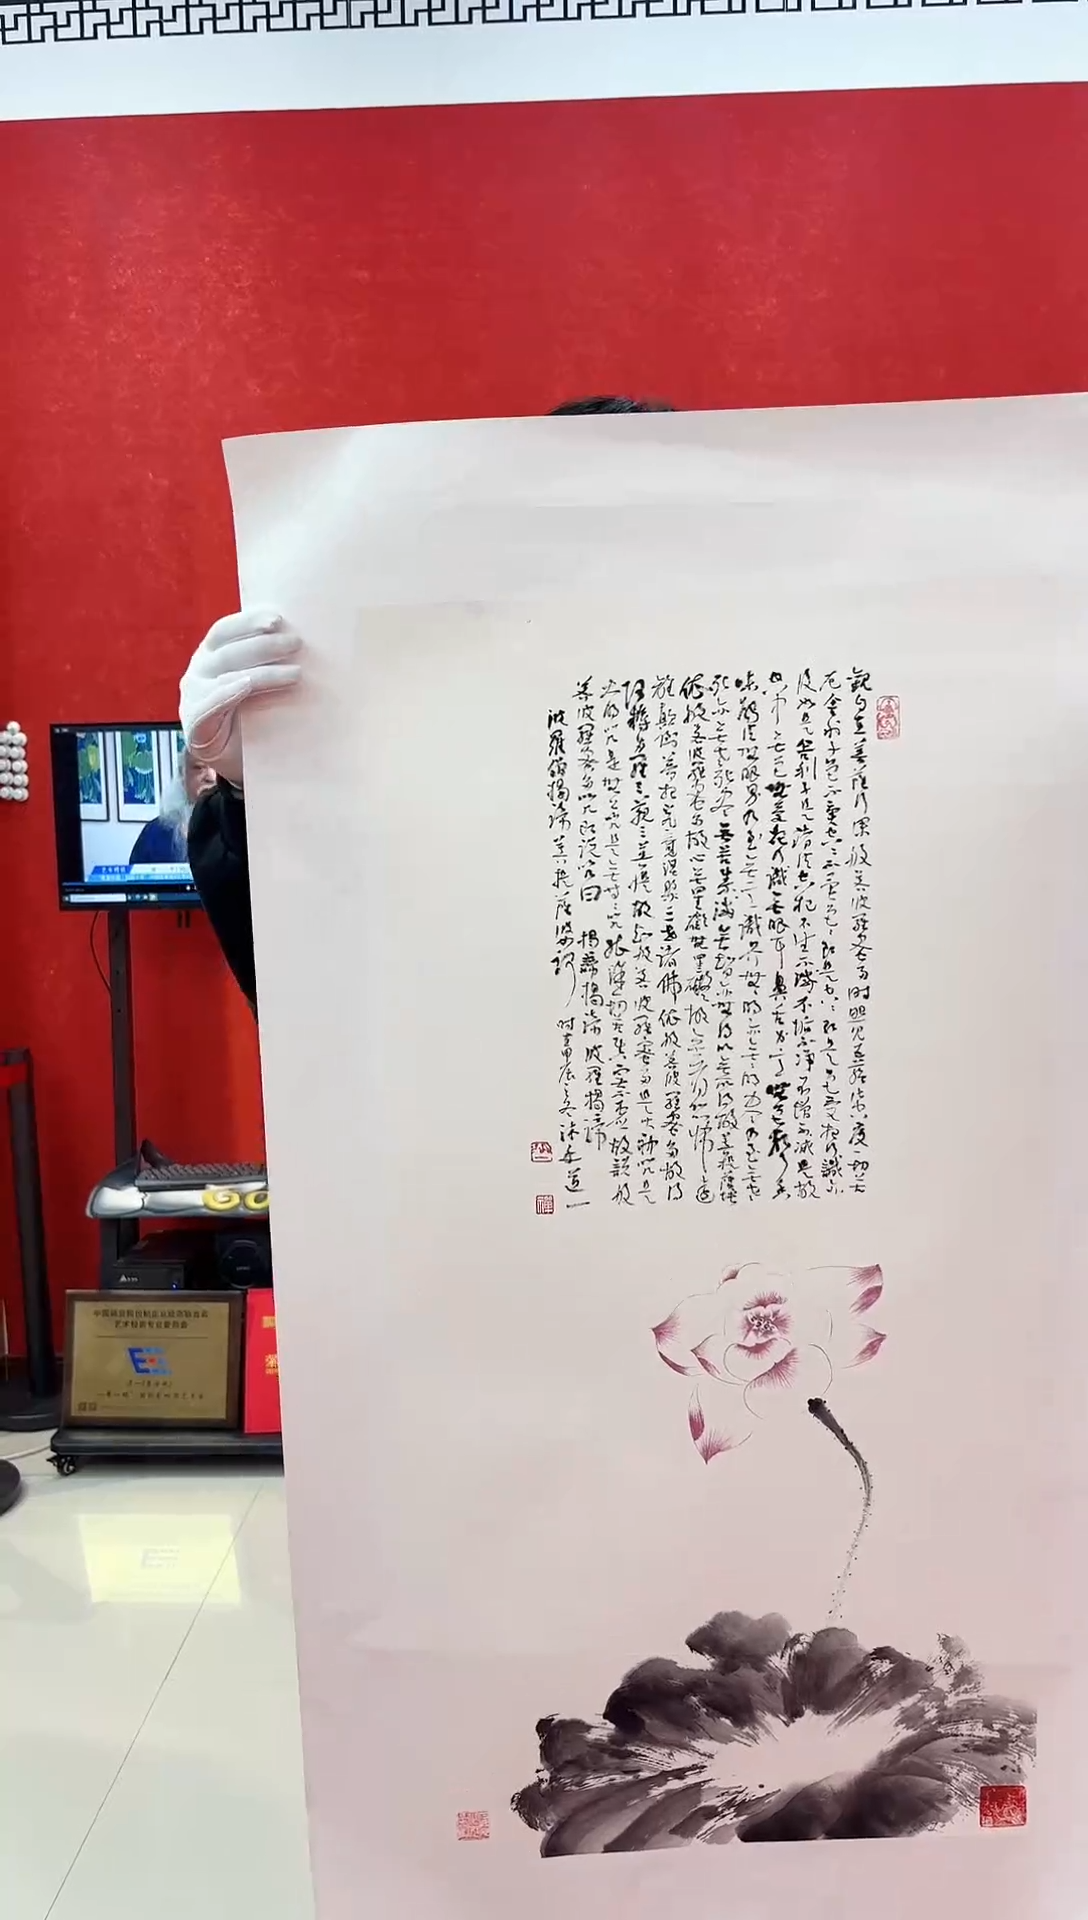 觀自在菩薩行深般若波羅蜜多時照見五蘊皆空度一切苦
厄舍利子色不異空空不異色色即是空空即是色受想行識亦
復如是舍利子是諸法空相不生不滅不垢不淨不增不減是故
空中無色無受想行識無眼耳鼻舌身意無色聲香
味觸法無眼界乃至無意識界無無明亦無無明盡乃至無老
死亦無老死盡無苦集滅道無智亦無得以無所得故菩提薩埵
依般若波羅蜜多故心無罣礙無罣礙故無有恐怖遠
離顛倒夢想究竟涅槃三世諸佛依般若波羅蜜多故得
阿耨多羅三藐三菩提故知般若波羅蜜多是大神咒是
大明咒是無上咒是無等等咒能除一切苦真實不虛故說般
若波羅蜜多咒即說咒曰 揭諦揭諦 波羅揭諦
波羅僧揭諦菩提薩婆訶
時在甲辰之冬 道一
艺术投资专业委员会